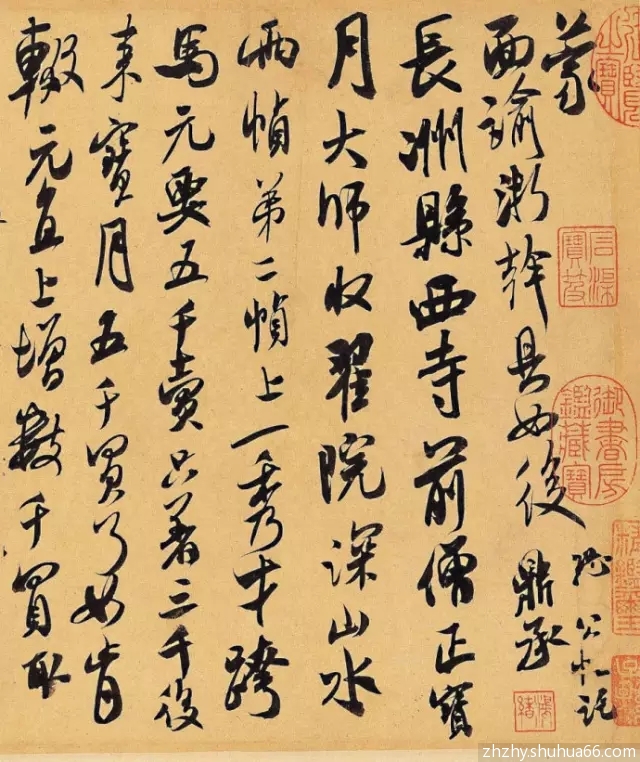 蒙
面諭浙幹具如後
鼎承
長洲縣西寺前僧正寶
月大師收翟院深山水
兩幀第二幀上一秀才跨
馬元要五千賣只著三千後
來寶月五千買了如肯
輟元直上增數千買取
石渠寶笈
御書房鑑藏寶
zhzhy.shuhua66.com